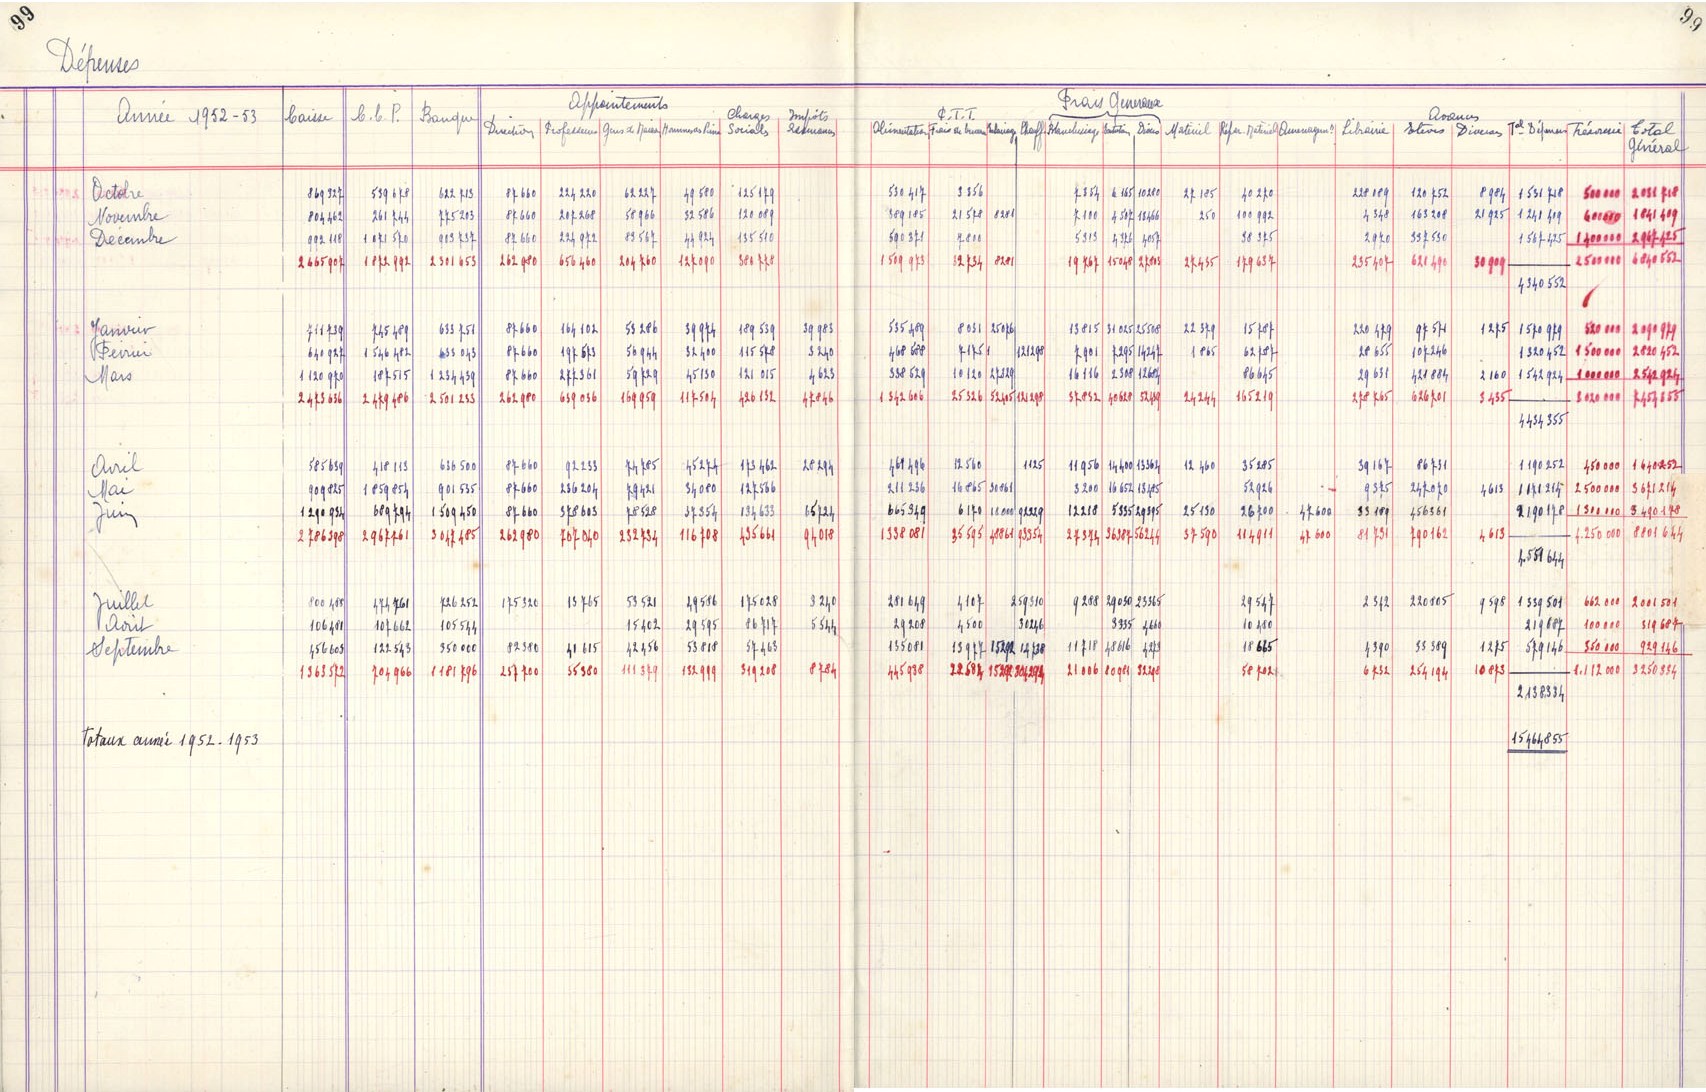 99 99
Dépenses
Appointements Frais Généraux
Année 1952-53 Caisse C.C.P. Banque Direction Professeurs Gens de Maison Charges Sociales Impôts P.T.T. Alimentation Frais de bureau Eclairage Chauff. Blanchissage Entretien Divers Matériel Répar. Matériel Aménagements Librairie Avances Elèves Diverses Tal Dépenses Trésorerie Total Général
Octobre 869327 539678 622713 87660 224220 62227 49580 125179 530417 3356 7354 6165 10280 27185 40270 228089 120752 8984 1531718 500000 2031718
Novembre 804462 261744 775203 87660 207268 58966 32586 120089 389185 21578 8281 7100 4507 13466 250 100992 4348 163208 21925 1241409 600000 1841409
Décembre 992118 1071570 903737 87660 224972 83567 44924 135510 590371 7800 5313 4376 4057 38375 2970 337530 1567425 1400000 2967425
2665907 1872992 2301653 262980 656460 204760 127090 380778 1509973 32734 8281 19767 15048 27803 27435 179637 235407 621490 30909 2500000 6840552
4340552
Janvier 711739 745489 633751 87660 164102 53286 39974 189539 39983 535489 8031 25076 13815 31025 25508 22379 15787 220479 97571 1275 1570979 520000 2090979
Février 640927 1546482 633043 87660 197573 56944 32400 115578 3240 468588 7175 121298 7901 7295 14247 1865 62787 28655 107246 1320452 1500000 2820452
Mars 1120970 187515 1234439 87660 277361 59729 45130 121015 4623 338529 10120 27329 16116 2308 12684 86645 29631 421884 2160 1542924 1000000 2542924
2473636 2479486 2501233 262980 639036 169959 117504 426132 47846 1342606 25326 52405 121298 37832 40628 52439 24244 165219 278765 626701 3435 3020000 7454355
4434355
Avril 585639 418113 636500 87660 92233 74785 45274 173462 28294 461496 12560 1125 11956 14400 13364 12460 35285 39167 86731 1190252 450000 1640252
Mai 909825 1859854 901535 87660 236204 79421 34080 127566 211236 16865 30861 3200 16652 13485 52926 9375 247070 4613 1171214 2500000 3671214
Juin 1290934 689794 1509450 87660 378603 78528 37354 134633 65724 665349 6170 18000 92229 12218 5335 29395 25130 26700 47600 33189 456361 2190178 1300000 3490178
2786398 2967761 3047485 262980 707040 232734 116708 435661 94018 1338081 35595 48861 93354 27374 36387 56244 37590 114911 47600 81731 790162 4613 4.250000 8801644
4.551644
Juillet 800488 474761 726252 175320 13765 53521 49586 175028 3240 281649 4107 259310 9288 29030 23365 29547 2342 220805 9598 1339501 662000 2001501
Août 106481 107662 105544 15402 29595 86717 5544 29208 4500 30246 3335 4660 10480 219687 100000 319687
Septembre 456603 122543 350000 82380 41615 42456 53818 57463 135081 13977 15292 14738 11718 48616 4273 18665 4390 33389 1275 579146 350000 929146
1363572 704966 1181796 257700 55380 111379 132999 319208 8784 445938 22584 15292 304294 21006 80981 32298 58702 6732 254194 10873 1.112000 3250334
2138334
Totaux année 1952-1953 15464855